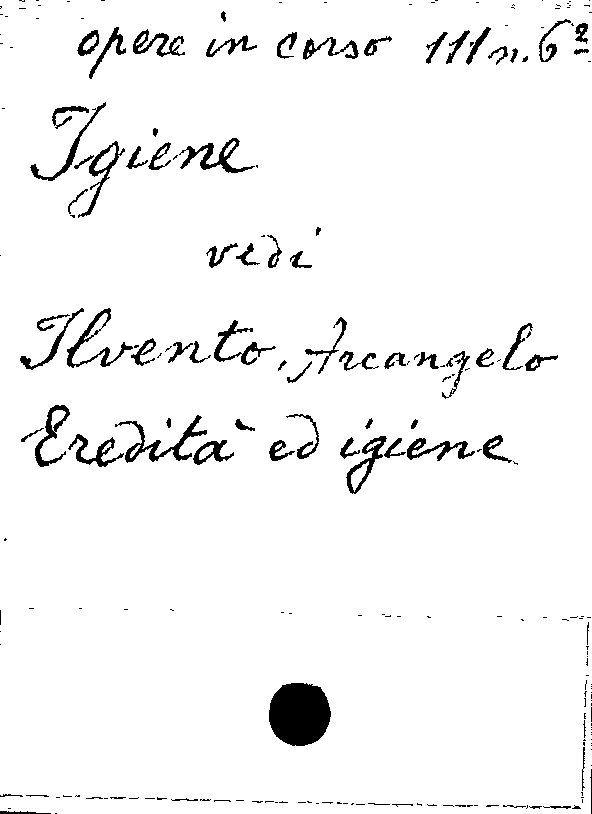 opere in corso 111 n. 6²
Igiene
vedi
Ilvento, Arcangelo
Eredità ed igiene